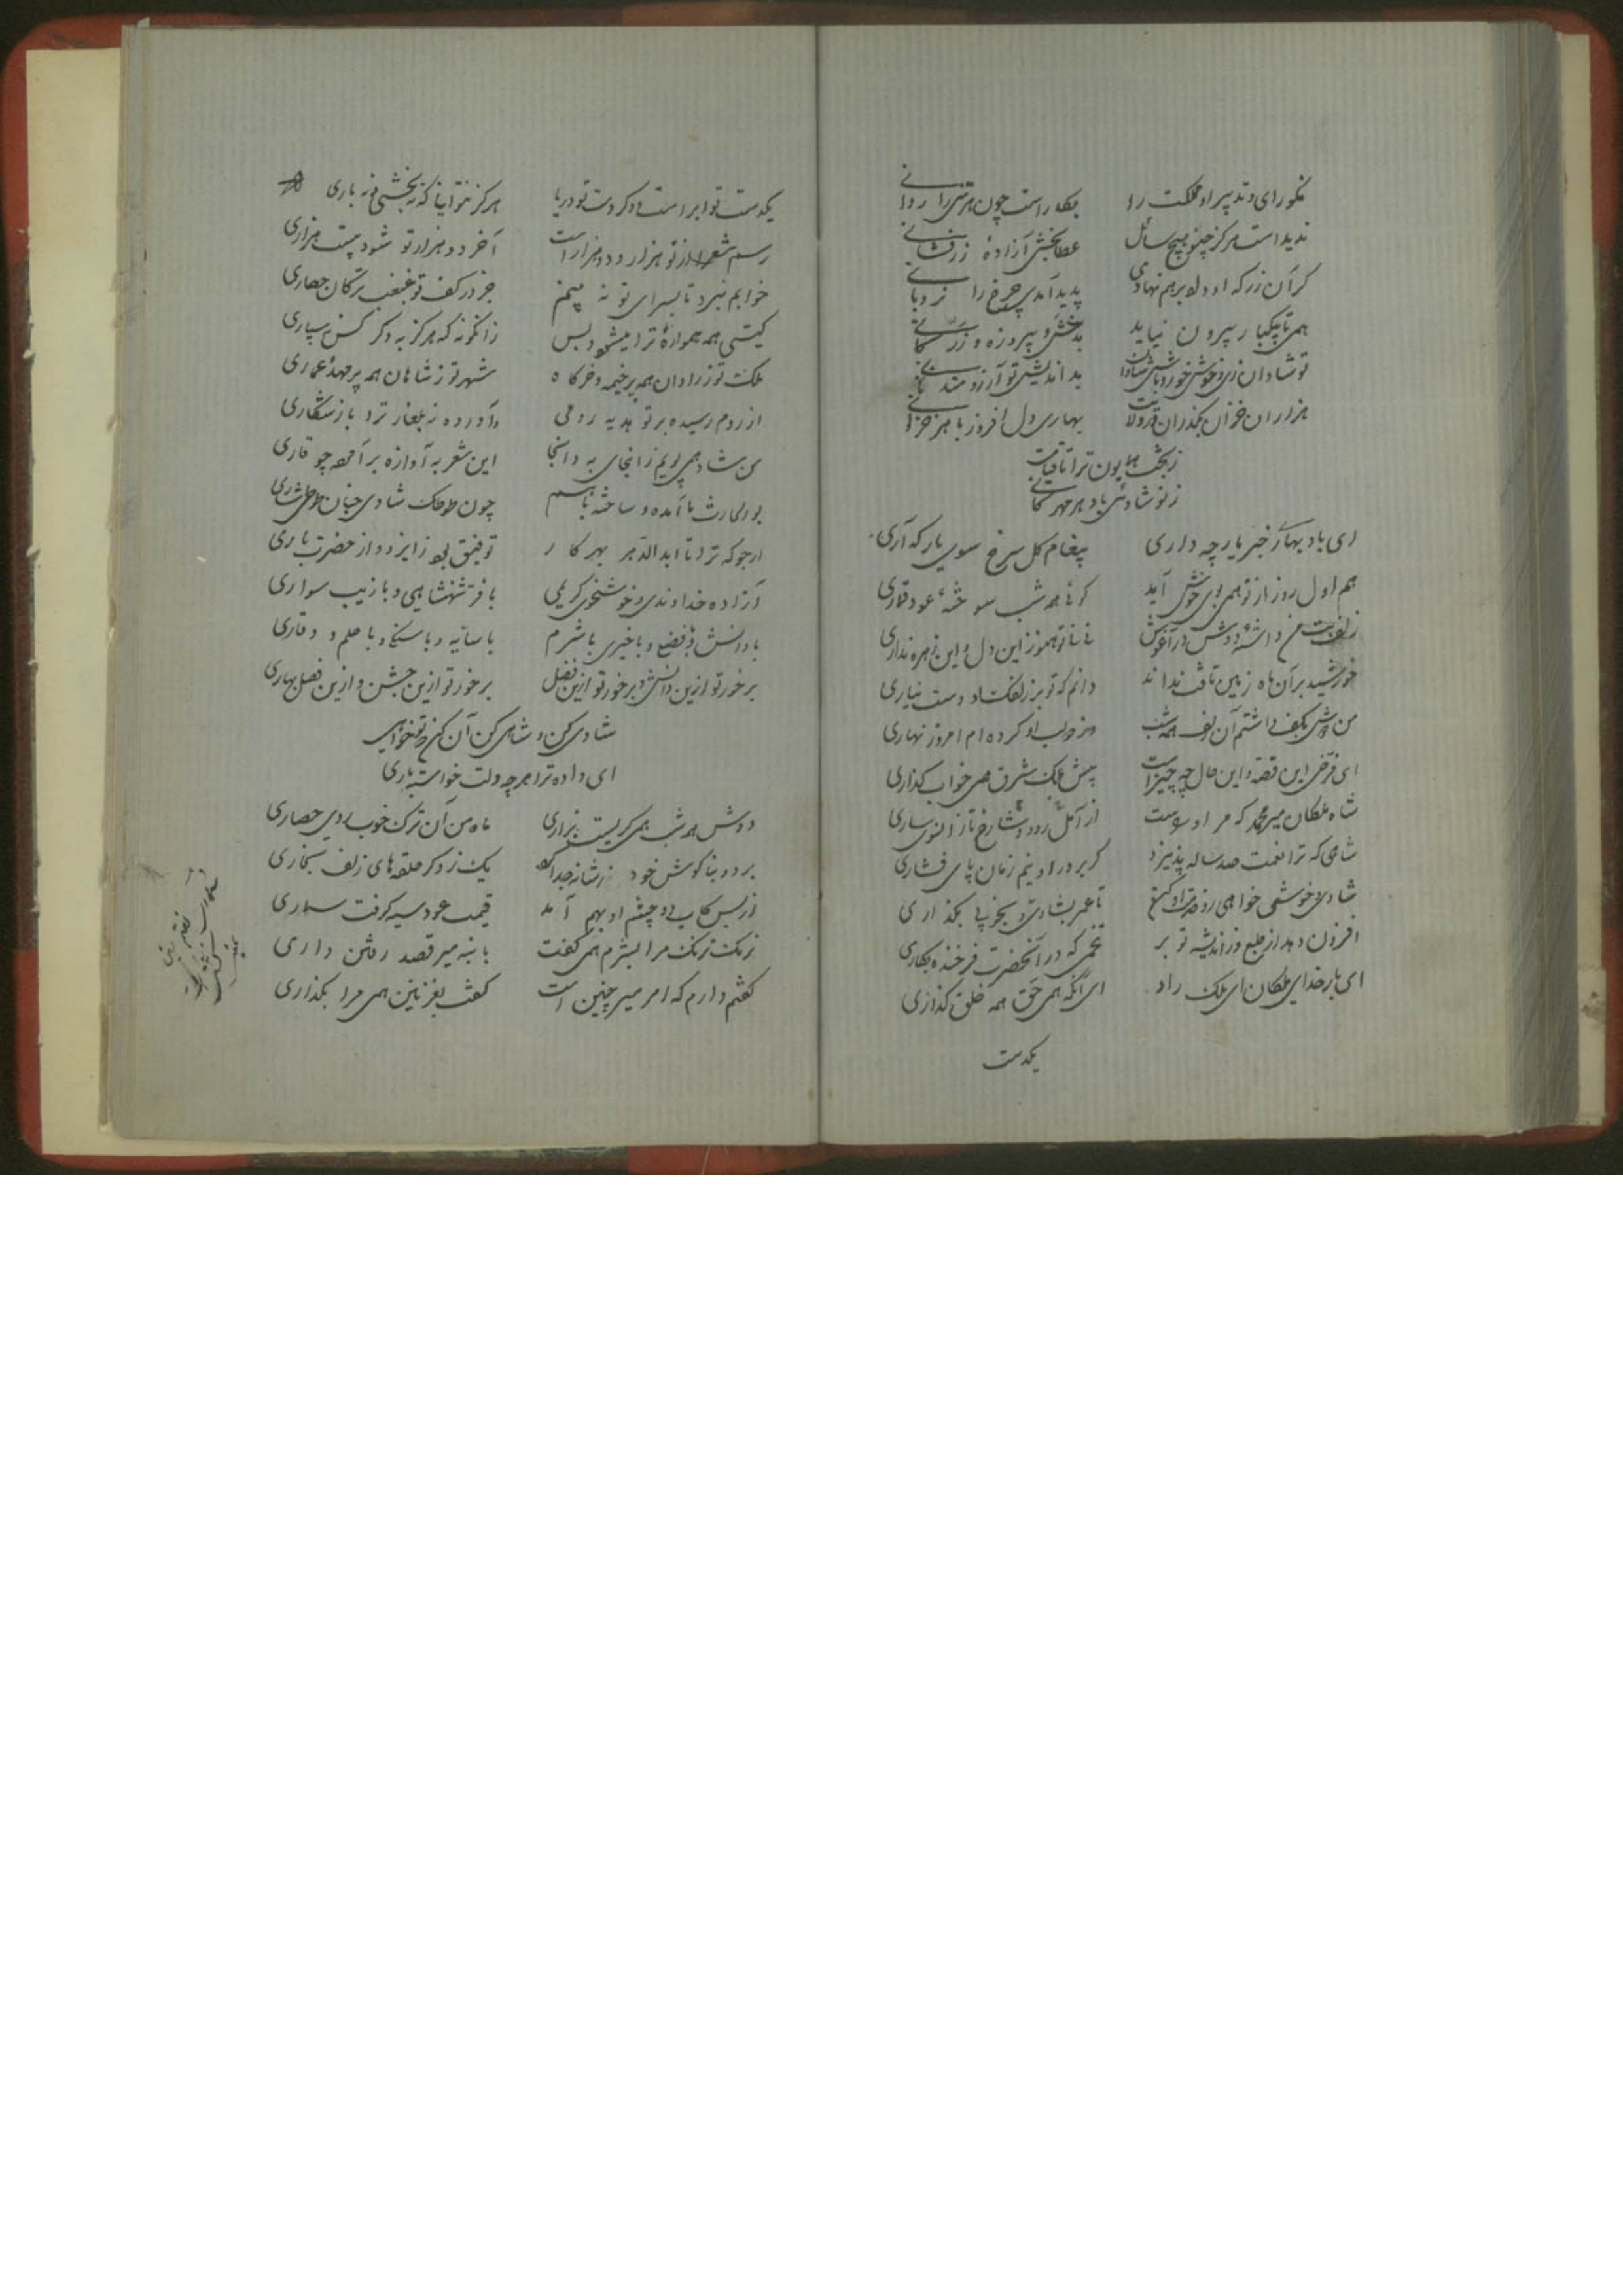 نکورای و تدبیر او مملکت را بکار است چون هر تنی را روانی
ندید است هرگز چنو هیچ سائل عطا بخش آزادهٔ زرفشانی
گر آن زر که او داد بر هم نهادی پدید آمدی چرخ را نردبانی
همی تا بیکبار بیرون نیاید بدخشی و پیروزه و زر ز کانی
تو شادان زی و خوش خور و باش شادان بد اندیش تو آرزومند نانی
هزاران خزان بگذران در ولایت بهاری دل افروز با هر خزانی
ز بخت همایون ترا تا قیامت
ز نو شادئی باد هر مهرگانی
ای باد بهار خبر یار چه داری پیغام گل سرخ سوی یار که آری
هم اول روز از تو همی بوی خوش آید گوئی همه شب سوختهٔ عود قماری
زلف بت من داشتهٔ دوش در آغوش نی نی تو هنوز این دل و این زهره نداری
خورشید بر آن ماه زمین تافت نداند دانم که تو بر زلفک او دست نیاری
من دوش بکف داشتم آن زلف همه شب وز دو لب او کرده ام امروز نهاری
ای فرخی این قصه و این حال چه چیز است پیش ملک شرق همی خواب گذاری
شاه ملکان میر محمد که مر او راست از آمل رود شارخ تا زانسوی ساری
شاهی که ترا نعمت صد ساله پذیرد گر بر در او نیم زمان پای فشاری
شادی و خوشی خواهی رو خدمت او کن تا عمر بشادی و بخوبی بگذاری
افزون دهد از طبع و ز اندیشه تو بر تخمی که در آنحضرت فرخنده بکاری
ای بار خدای ملکان ای ملک راد ای آنکه همی حق همه خلق گذاری
یکدست
یکدست تو ابر است و دگر دست تو دریا هرگز نتوانیا که نبخشی و نه باری
رسم شعرا از تو هزار و دو هزار است آخر دو هزار تو شود بیست هزاری
خوابم نبرد تا بسرای تو نه بینم جز در کف تو غبغب ترکان حصاری
گیتی همه همواره ترا میشود و بس زانگونه که هرگز به دگر کس نسپاری
ملکت تو ز رادان همه پر خیمه و خرگاه شهر تو ز شاهان همه پر مهد و عماری
از روم رسیده بر تو هدیه رومی وآورده ز بلغار ترا باز شکاری
من شاد همی پویم زانجای به دانجا این شعر به آوازه بر آهخته چو قاری
بوالحارث ما آمده و ساخته باسم چون طوطیک شادی
ارجو که ترا تا ابدالدهر بهر کار توفیق بود ز ایزد و از حضرت باری
آزاده خداوندی و خوشخوی کریمی با فر شهنشاهی و با زیب سواری
با دانش و با فضلی و با خیری با شرم با سایه و با سنگی و با حلم و وقاری
بر خور تو ازین دانش و بر خور تو ازین فضل بر خور تو ازین جشن و ازین فصل بهاری
شادی کن و شاهی کن آن کن که تو خواهی
ای داده ترا هر چه دلت خواسته باری
دوش همه شب همی گریست بزاری ماه من آن ترک خوبروی حصاری
بر دو بناگوش خود ز شانه جدا کرد یک ز دگر حلقه های زلف بخاری
از بس کاب دو چشم او بهم آمد قیمت عود سیه گرفت سماری
نرمک نرمک مرا بشرم همی گفت با بنه میر قصد رفتن داری
گفتم دارم که امر میر چنین است گفت بغزنین همی مرا بگذاری